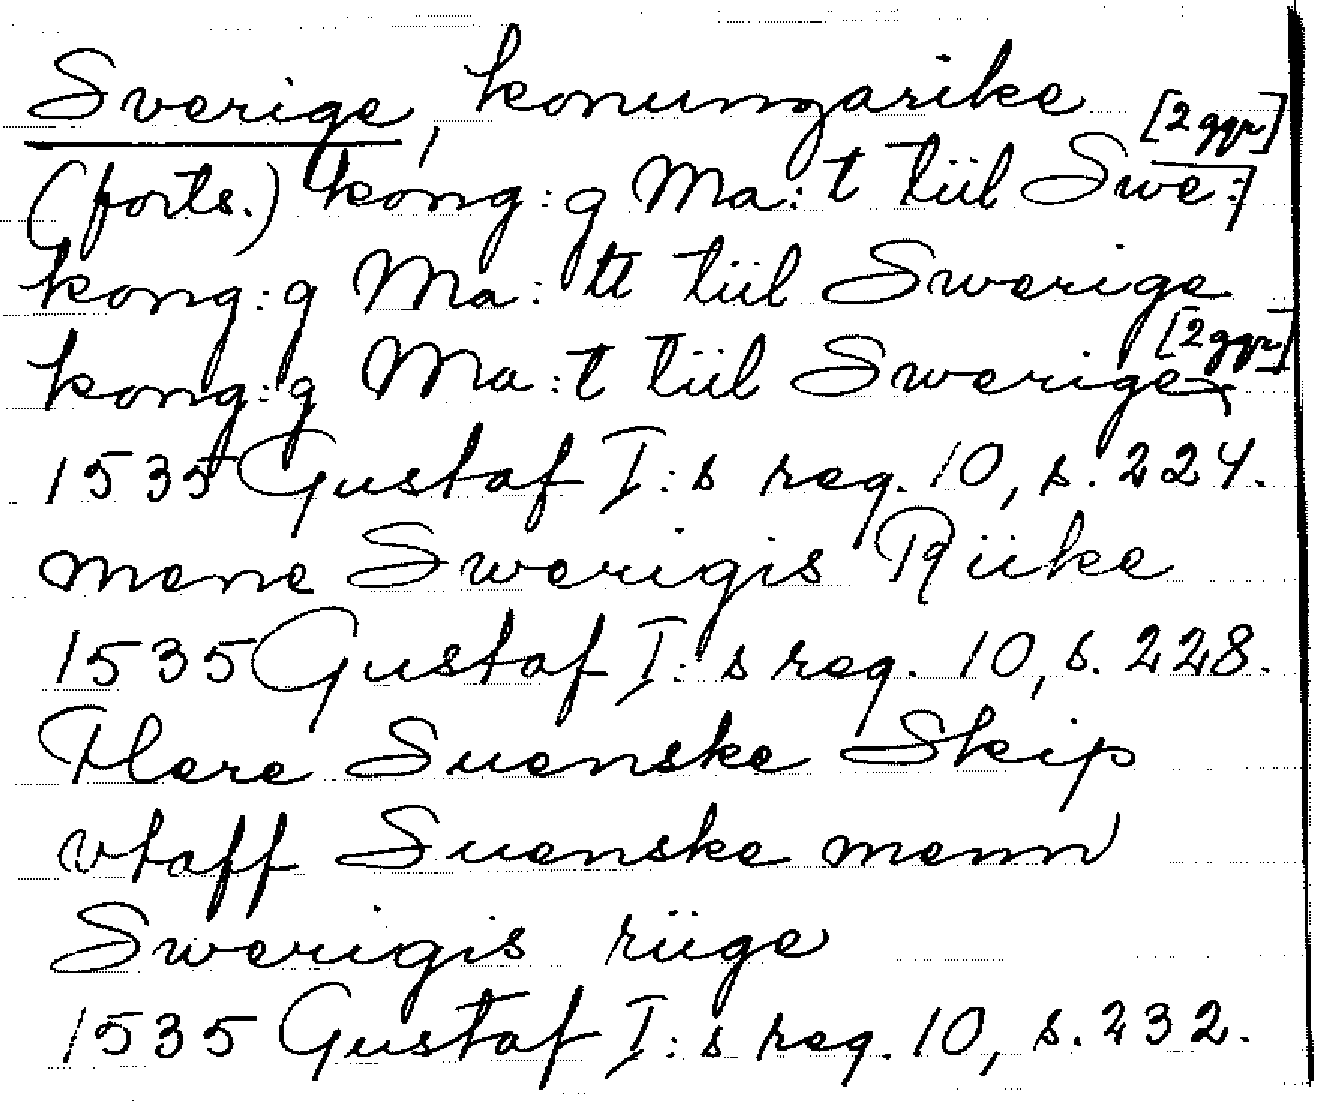 Sverige, konungarike
[2 ggr]
(forts.) kong:g Ma:t tiil Swe:
kong:g Ma: tt tiil Swerige
[2 ggr]
kong:g Ma:t tiil Swerige
1535 Gustaf I:s reg. 10, s. 224.
mene Swerigis Riike
1535 Gustaf I:s reg. 10, s. 228.
Flere Suenske Skip
vtaff Suenske menn
Swerigis riige
1535 Gustaf I:s reg. 10, s. 232.